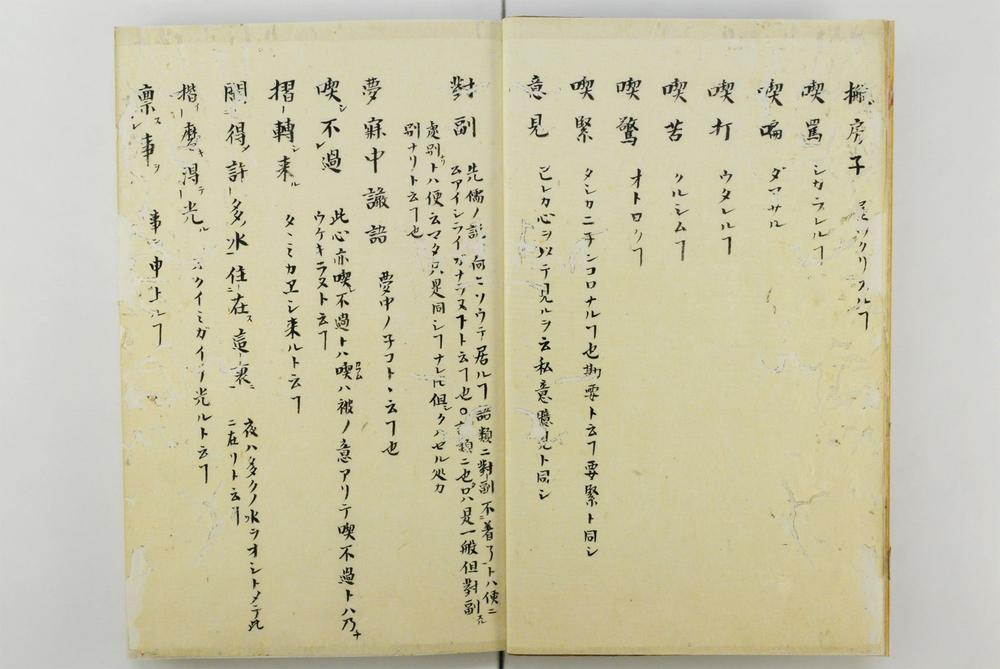 房子
喫罵 シカラレルヿ
喫騙 ダマサル
喫打 ウタレルヿ
喫苦 クルシムヿ
喫驚 オトロクヿ
喫緊 タシカニ子ンコロナルヿ也斯要ト云ヿ要緊ト同シ
意見 心ヲ以テ見ルヲ云私意臆見ト同シ
對副 先儒ノ説 何ニソウテ居ルヿ語類ニ對副不着了トハ便ニ
也○語類ニ也只是一般但對副
處別トハ便云マタ只是同シヿナレ𪜈但
別ナリト云ヿ也
夢寐中譫語 夢中ノ子コトヽ云ヿ也
喫不過 此心亦喫不過トハ喫ハ被ノ意アリテ喫不過トハ乃
ウケキラスト云ヿ
摺轉来 タヽミカヱシ来ルト云ヿ
關得許多水住在這裏 夜ハ多クノ水ヲオシトメテ此
ニ在リト云ヿ
揩磨得光 イミガイテ光ルト云ヿ
禀事 事ヲ申上ルヿ